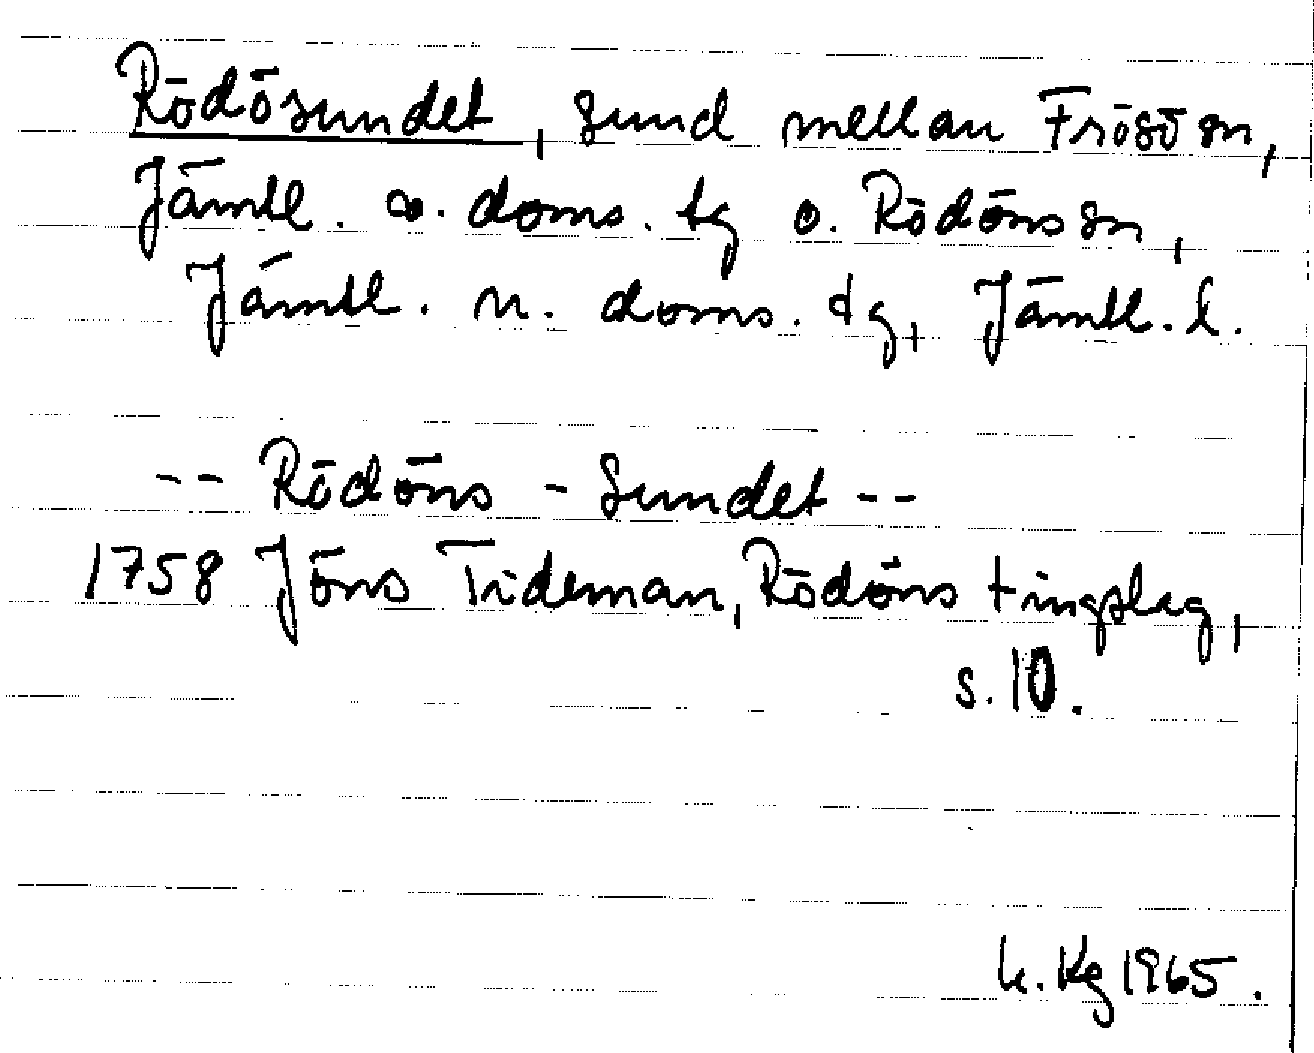 Rödösundet, sund mellan Frösö sn,
Jämtl. v. doms. tg o. Rödöns sn,
Jämtl. n. doms. tg, Jämtl. l.
-- Rödöns - Sundet --
1758 Jöns Tideman, Rödöns tingslag,
s. 10.
Kg 1965.